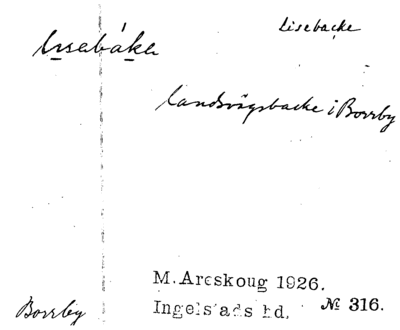 Lisebacke
lisabáka
landsvägsbacke i Borrby
M. Areskoug 1926.
Borrby
Ingelstads hd. № 316.